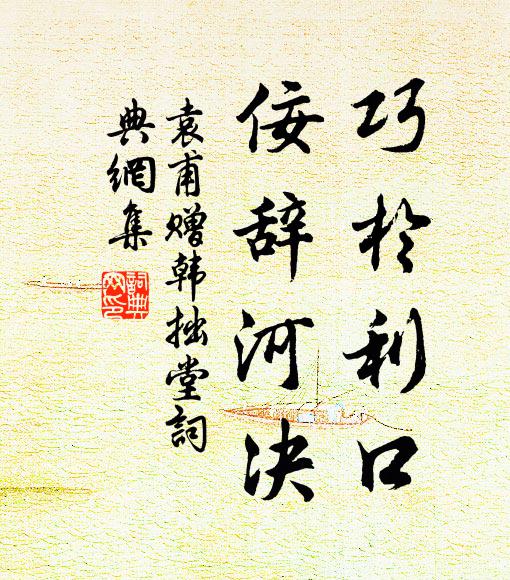 巧於利口
佞辞河决
袁甫赠韩拙堂詞
典網集
詞典